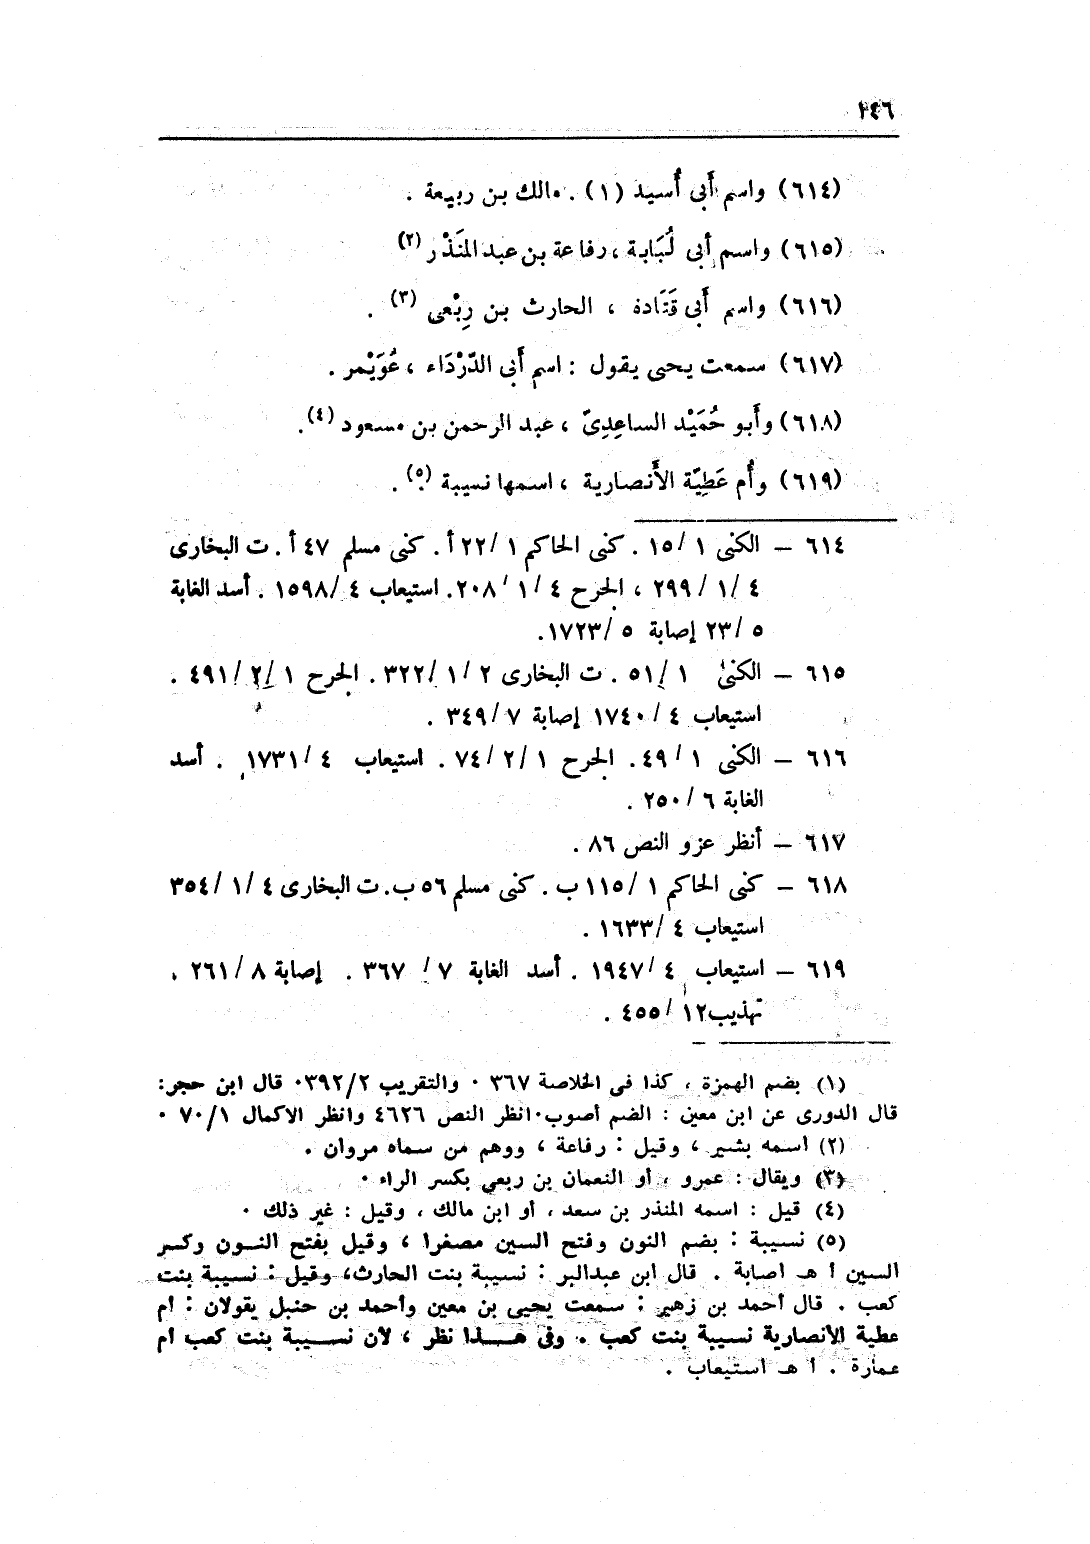 ٢٤٦
(٦١٤) واسم أَبى أُسيد (١) . مالك بن ربيعة .
(٦١٥) واسم أبى لُبَابة ، رفاعة بن عبد المنَذْر (٢)
(٦١٦) واسم أَبى قَتَادة ، الحارث بن رِبْعى (٣) .
(٦١٧) سمعت يحيى يقول : اسم أَبى الدّرْدَاء ، عُوَيْمر .
(٦١٨) وأَبو حُمَيْد الساعِدِىّ ، عبد الرحمن بن مسعود (٤) .
(٦١٩) وأُم عَطِيّة الأَنصارية ، اسمها نسيبة (٥) .
٦١٤ – الكنى ١ /١٥ . كنى الحاكم ١ /٢٢ أ . كنى مسلم ٤٧ أ . ت البخارى
٤ /١ /٢٩٩ ، الجرح ٤ /١ /٢٠٨ . استيعاب ٤ /١٥٩٨ . أسد الغابة
٥ /٢٣ إصابة ٥ /١٧٢٣ .
٦١٥ – الكنى ١ /٥١ . ت البخارى ٢ /١ /٣٢٢ . الجرح ١ /٢ /٤٩١ .
استيعاب ٤ /١٧٤٠ إصابة ٧ /٣٤٩ .
٦١٦ – الكنى ١ /٤٩ . الجرح ١ /٢ /٧٤ . استيعاب ٤ /١٧٣١ . أسد
الغابة ٦ /٢٥٠ .
٦١٧ – أنظر عزو النص ٨٦ .
٦١٨ – كنى الحاكم ١ /١١٥ ب . كنى مسلم ٥٦ ب . ت البخارى ٤ /١ /٣٥٤
استيعاب ٤ /١٦٣٣ .
٦١٩ – استيعاب ٤ /١٩٤٧ . أسد الغابة ٧ /٣٦٧ . إصابة ٨ /٢٦١ ،
تهذيب ١٢ /٤٥٥ .
(١) بضم الهمزة ، كذا فى الخلاصة ٣٦٧ . والتقريب ٣٩٢/٢. قال ابن حجر:
قال الدورى عن ابن معين : الضم أصوب . انظر النص ٤٦٢٦ وانظر الاكمال ٧٠/١ .
(٢) اسمه بشير ، وقيل : رفاعة ، ووهم من سماه مروان .
(٣) ويقال : عمرو ، أو النعمان بن ربعي بكسر الراء .
(٤) قيل : اسمه المنذر بن سعد ، أو ابن مالك ، وقيل : غير ذلك .
(٥) نسيبة : بضم النون وفتح السين مصغرا ، وقيل بفتح النـون وكـر
السين أ هـ اصابة . قال ابن عبدالبر : نسيبة بنت الحارث، وقيل : نسيبة بنت
كعب . قال أحمد بن زهير : سمعت يحيى بن معين وأحمد بن حنبل يقولان : أم
عطية الأنصارية نسيبة بنت كعب . وفى هـذا نظر ، لأن نسـيبة بنت كعب أم
عمارة . أ هـ استيعاب .